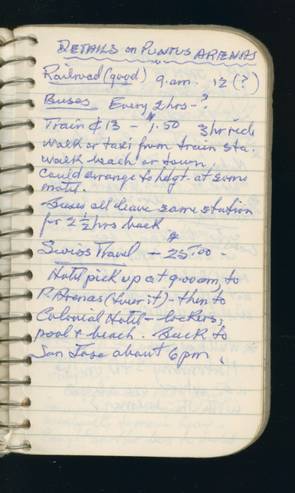 DETAILS on PUNTUS ARENAS
Railroad (good) 9 a.m. 12 (?)
Buses Every 2 hrs - ?
Train ¢ 13 - $1.50 3 hr
walk or taxi from train sta.
walk beach or town
Could arrange to at some
motel.
Buses all leave same station
for 2 1/2 hrs back
Swiss Travel - $25.00 -
Hotel pick up at 9:00 am, to
P. Arenas (tour it) - then to
Colonial Hotel - lockers,
pool & beach. Back to
San Jose about 6 pm.